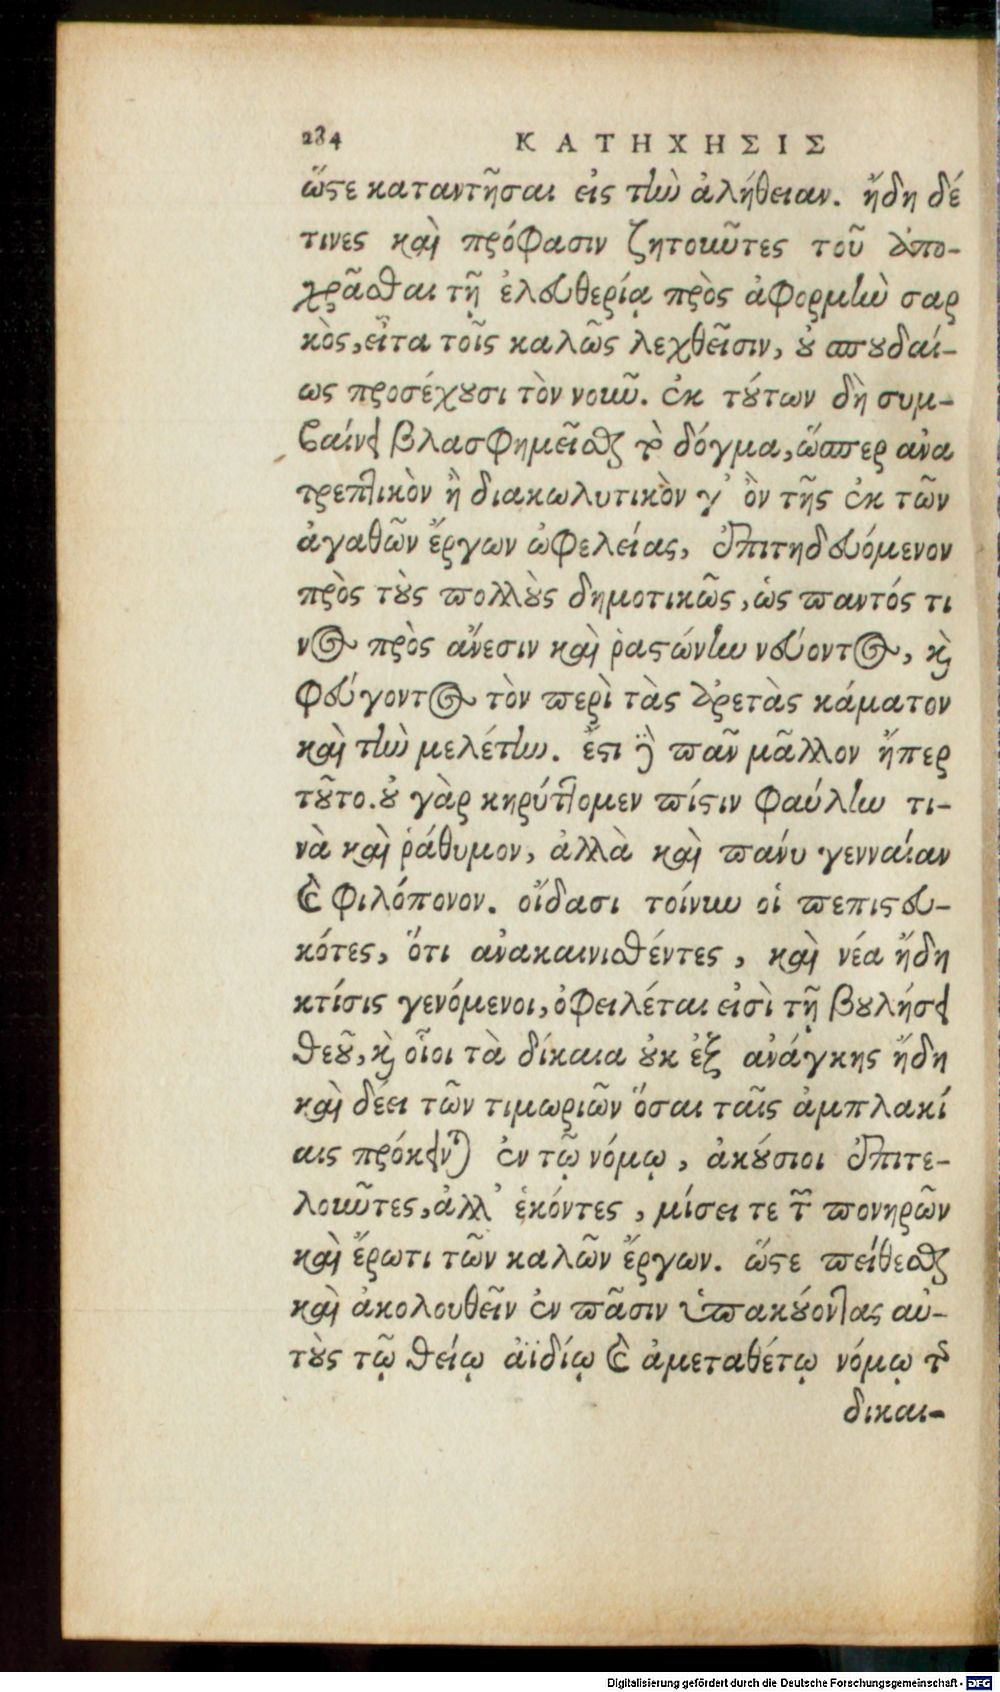 284 ΚΑΤΗΧΗΣΙΣ
ὥστε καταντῆσαι εἰς τὴν ἀλήθειαν. ἤδη δέ
τινες καὶ πρόφασιν ζητοῦντες τοῦ ἀπο-
χρᾶσθαι τῇ ἐλευθερίᾳ πρὸς ἀφορμὴν σαρ
κὸς, εἶτα τοῖς καλῶς λεχθεῖσιν, οὐ σπουδαί-
ως προσέχουσι τὸν νοῦν. ἐκ τούτων δὴ συμ-
βαίνει βλασφημεῖσθαι τὸ δόγμα, ὥσπερ ἀνα
τρεπτικὸν ἢ διακωλυτικὸν γ' ὂν τῆς ἐκ τῶν
ἀγαθῶν ἔργων ὠφελείας, ἐπιτηδευόμενον
πρὸς τοὺς πολλοὺς δημοτικῶς, ὡς παντός τι
νος πρὸς ἄνεσιν καὶ ῥαστώνην νεύοντος, καὶ
φεύγοντος τὸν περὶ τὰς ἀρετὰς κάματον
καὶ τὴν μελέτην. ἔστι δὲ πᾶν μᾶλλον ἤπερ
τοῦτο. οὐ γὰρ κηρύττομεν πίστιν φαύλην τι-
νὰ καὶ ῥάθυμον, ἀλλὰ καὶ πάνυ γενναίαν
καὶ φιλόπονον. οἴδασι τοίνυν οἱ πεπιστευ-
κότες, ὅτι ἀνακαινισθέντες, καὶ νέα ἤδη
κτίσις γενόμενοι, ὀφειλέται εἰσὶ τῇ βουλήσει
θεοῦ, καὶ οἷοι τὰ δίκαια οὐκ ἐξ ἀνάγκης ἤδη
καὶ δέει τῶν τιμωριῶν ὅσαι ταῖς ἀμπλακί
αις πρόκεινται ἐν τῷ νόμῳ, ἀκούσιοι ἐπιτε-
λοῦντες, ἀλλ' ἑκόντες, μίσει τε τῶν πονηρῶν
καὶ ἔρωτι τῶν καλῶν ἔργων. ὥστε πείθεσθαι
καὶ ἀκολουθεῖν ἐν πᾶσιν ὑπακούοντας αὐ-
τοὺς τῷ θείῳ ἀϊδίῳ καὶ ἀμεταθέτῳ νόμῳ τῆς
δικαι-
Digitalisierung gefördert durch die Deutsche Forschungsgemeinschaft - DFG